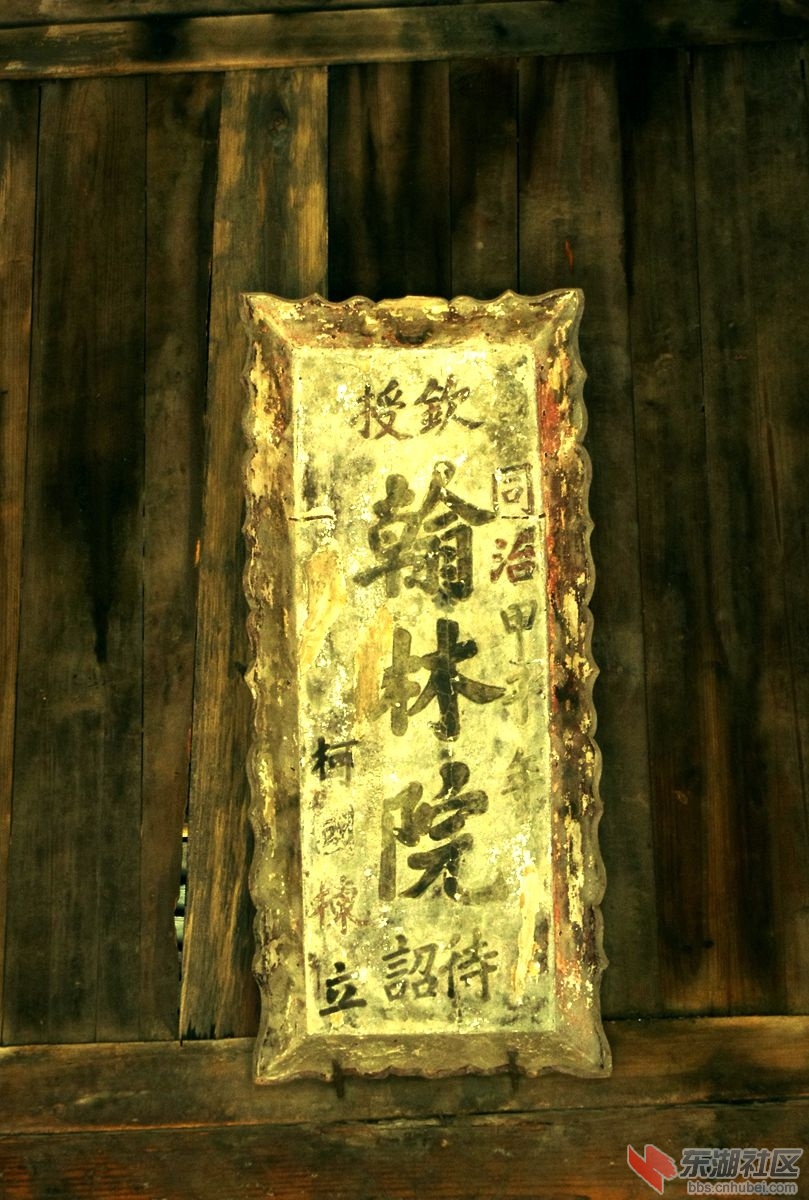 欽授
同治甲年
翰林院
待詔
柯國棟立
东湖社区
bbs.cnhubei.com